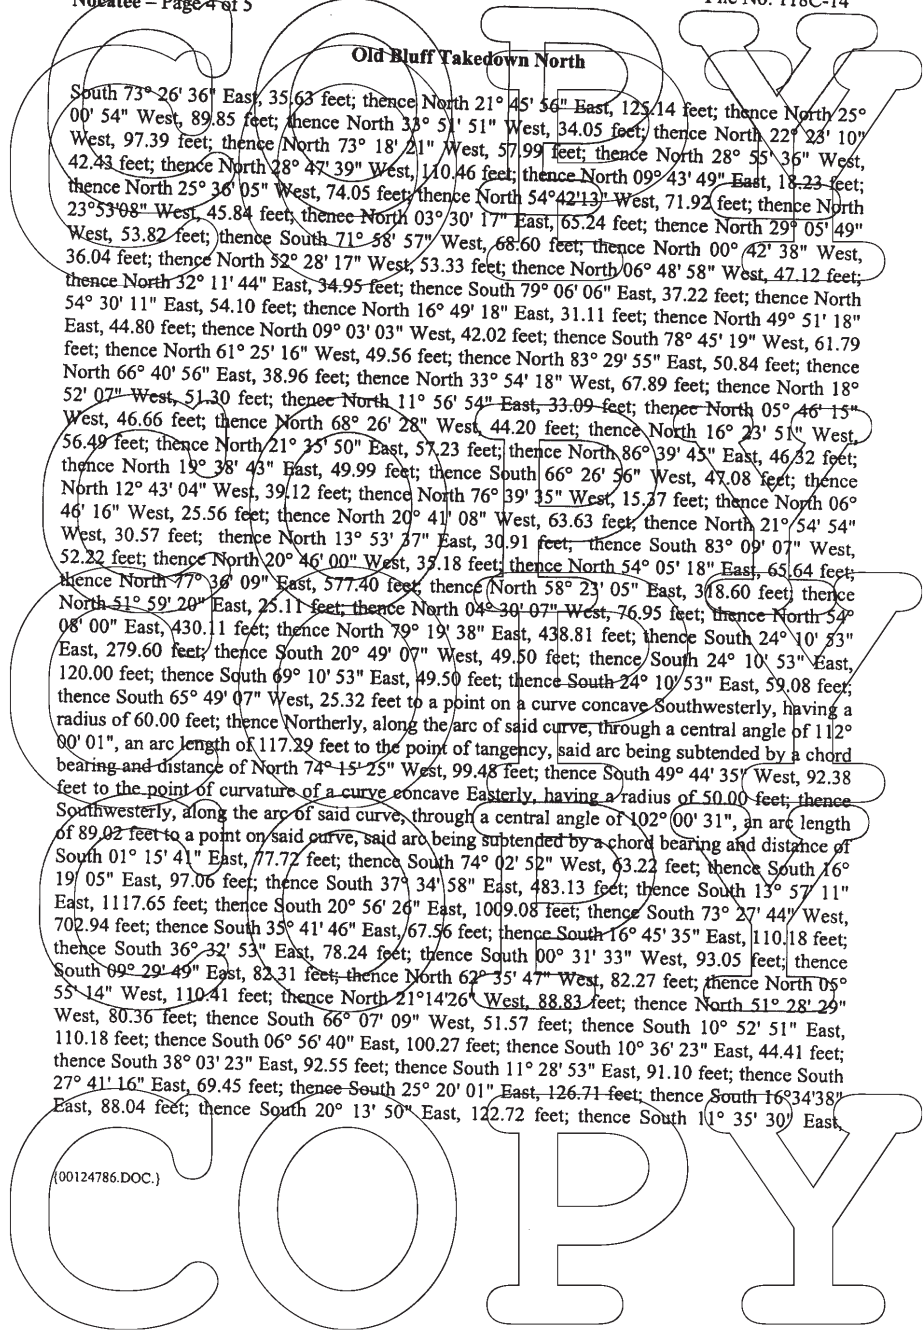 Nocatee – Page 4 of 5 File No. 118C-14
Old Bluff Takedown North
South 73° 26' 36" East, 35.63 feet; thence North 21° 45' 56" East, 125.14 feet; thence North 25°
00' 54" West, 89.85 feet; thence North 33° 51' 51" West, 34.05 feet; thence North 22° 23' 10"
West, 97.39 feet; thence North 73° 18' 21" West, 57.99 feet; thence North 28° 55' 36" West,
42.43 feet; thence North 28° 47' 39" West, 110.46 feet; thence North 09° 43' 49" East, 18.23 feet;
thence North 25° 36' 05" West, 74.05 feet; thence North 54°42'13" West, 71.92 feet; thence North
23°53'08" West, 45.84 feet; thence North 03° 30' 17" East, 65.24 feet; thence North 29° 05' 49"
West, 53.82 feet; thence South 71° 58' 57" West, 68.60 feet; thence North 00° 42' 38" West,
36.04 feet; thence North 52° 28' 17" West, 53.33 feet; thence North 06° 48' 58" West, 47.12 feet;
thence North 32° 11' 44" East, 34.95 feet; thence South 79° 06' 06" East, 37.22 feet; thence North
54° 30' 11" East, 54.10 feet; thence North 16° 49' 18" East, 31.11 feet; thence North 49° 51' 18"
East, 44.80 feet; thence North 09° 03' 03" West, 42.02 feet; thence South 78° 45' 19" West, 61.79
feet; thence North 61° 25' 16" West, 49.56 feet; thence North 83° 29' 55" East, 50.84 feet; thence
North 66° 40' 56" East, 38.96 feet; thence North 33° 54' 18" West, 67.89 feet; thence North 18°
52' 07" West, 51.30 feet; thence North 11° 56' 54" East, 33.09 feet; thence North 05° 46' 15"
West, 46.66 feet; thence North 68° 26' 28" West, 44.20 feet; thence North 16° 23' 51" West,
56.49 feet; thence North 21° 35' 50" East, 57.23 feet; thence North 86° 39' 45" East, 46.32 feet;
thence North 19° 38' 43" East, 49.99 feet; thence South 66° 26' 56" West, 47.08 feet; thence
North 12° 43' 04" West, 39.12 feet; thence North 76° 39' 35" West, 15.37 feet; thence North 06°
46' 16" West, 25.56 feet; thence North 20° 41' 08" West, 63.63 feet; thence North 21° 54' 54"
West, 30.57 feet; thence North 13° 53' 37" East, 30.91 feet; thence South 83° 09' 07" West,
52.22 feet; thence North 20° 46' 00" West, 35.18 feet; thence North 54° 05' 18" East, 65.64 feet;
thence North 77° 36' 09" East, 577.40 feet; thence North 58° 23' 05" East, 318.60 feet; thence
North 51° 59' 20" East, 25.11 feet; thence North 04° 30' 07" West, 76.95 feet; thence North 54°
08' 00" East, 430.11 feet; thence North 79° 19' 38" East, 438.81 feet; thence South 24° 10' 53"
East, 279.60 feet; thence South 20° 49' 07" West, 49.50 feet; thence South 24° 10' 53" East,
120.00 feet; thence South 69° 10' 53" East, 49.50 feet; thence South 24° 10' 53" East, 59.08 feet;
thence South 65° 49' 07" West, 25.32 feet to a point on a curve concave Southwesterly, having a
radius of 60.00 feet; thence Northerly, along the arc of said curve, through a central angle of 112°
00' 01", an arc length of 117.29 feet to the point of tangency, said arc being subtended by a chord
bearing and distance of North 74° 15' 25" West, 99.48 feet; thence South 49° 44' 35" West, 92.38
feet to the point of curvature of a curve concave Easterly, having a radius of 50.00 feet; thence
Southwesterly, along the arc of said curve, through a central angle of 102° 00' 31", an arc length
of 89.02 feet to a point on said curve, said arc being subtended by a chord bearing and distance of
South 01° 15' 41" East, 77.72 feet; thence South 74° 02' 52" West, 63.22 feet; thence South 16°
19' 05" East, 97.06 feet; thence South 37° 34' 58" East, 483.13 feet; thence South 13° 57' 11"
East, 1117.65 feet; thence South 20° 56' 26" East, 1009.08 feet; thence South 73° 27' 44" West,
702.94 feet; thence South 35° 41' 46" East, 67.56 feet; thence South 16° 45' 35" East, 110.18 feet;
thence South 36° 32' 53" East, 78.24 feet; thence South 00° 31' 33" West, 93.05 feet; thence
South 09° 29' 49" East, 82.31 feet; thence North 62° 35' 47" West, 82.27 feet; thence North 05°
55' 14" West, 110.41 feet; thence North 21°14'26" West, 88.83 feet; thence North 51° 28' 29"
West, 80.36 feet; thence South 66° 07' 09" West, 51.57 feet; thence South 10° 52' 51" East,
110.18 feet; thence South 06° 56' 40" East, 100.27 feet; thence South 10° 36' 23" East, 44.41 feet;
thence South 38° 03' 23" East, 92.55 feet; thence South 11° 28' 53" East, 91.10 feet; thence South
27° 41' 16" East, 69.45 feet; thence South 25° 20' 01" East, 126.71 feet; thence South 16°34'38"
East, 88.04 feet; thence South 20° 13' 50" East, 122.72 feet; thence South 11° 35' 30" East,
{00124786.DOC.}
COPY
COPY
COPY
COPY
COPY
COPY